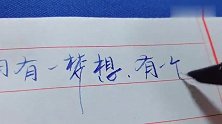 有一梦想，有一个